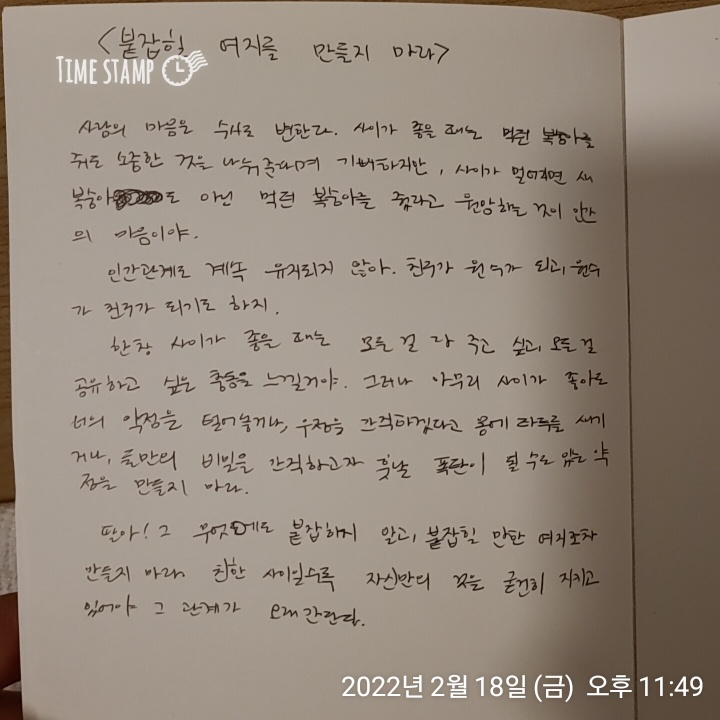 <붙잡힐 여지를 만들지 마라>
TIME STAMP
사람의 마음은 수시로 변한다. 사이가 좋을 때는 먹던 복숭아를
줘도 소중한 것을 나눠준다며 기뻐하지만, 사이가 멀어지면 새
복숭아도 아닌 먹던 복숭아를 줬다고 원망하는 것이 인간
의 마음이야.
인간관계도 계속 유지되지 않아. 친구가 원수가 되고, 원수
가 친구가 되기도 하지.
한창 사이가 좋을 때는 모든 걸 다 주고 싶고, 모든 걸
공유하고 싶은 충동을 느낄거야. 그러나 아무리 사이가 좋아도
너의 약점을 털어놓거나, 우정을 간직하겠다고 몸에 타투를 새기
거나, 둘만의 비밀을 간직하고자 훗날 폭탄이 될 수도 있는 약
점을 만들지 마라.
딸아! 그 무엇에도 붙잡히지 말고, 붙잡힐 만한 여지조차
만들지 마라. 친한 사이일수록 자신만의 것을 굳건히 지키고
있어야 그 관계가 오래간단다.
2022년 2월 18일 (금) 오후 11:49